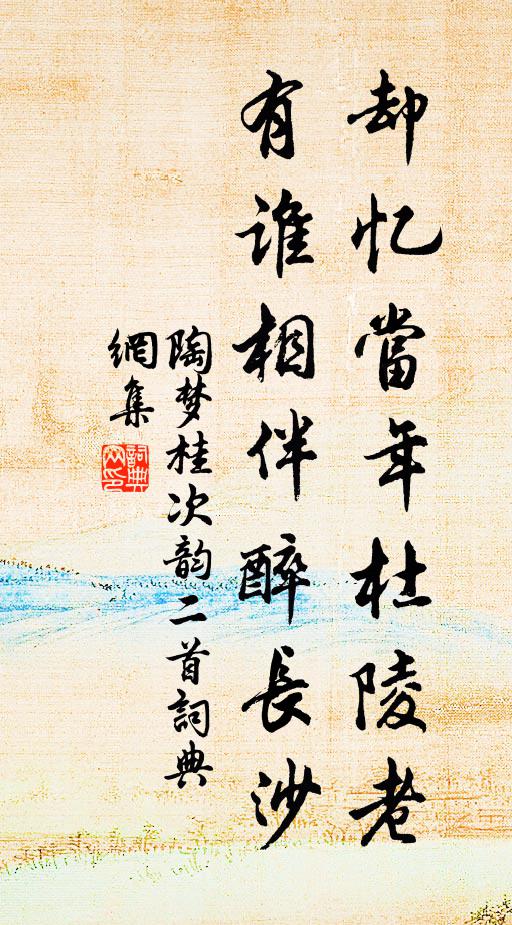 却忆當年杜陵老
有谁相伴醉長沙
陶梦桂次韵二首詞典
網集
詞典
网印